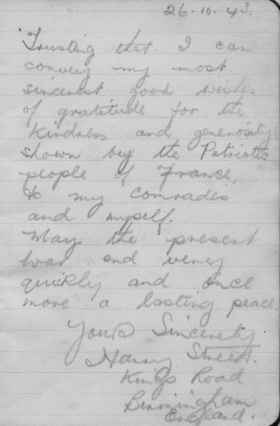 26-10-43.
Trusting that I can
convey my most
sincerest good wishes
of gratitude for the
kindness and generosity
shown by the Patriotic
people of France,
to my comrades
and myself.
May the present
war end very
quickly and once
more a lasting peace.
Yours Sincerely.
Harry Street.
Kings Road
Birmingham
England.